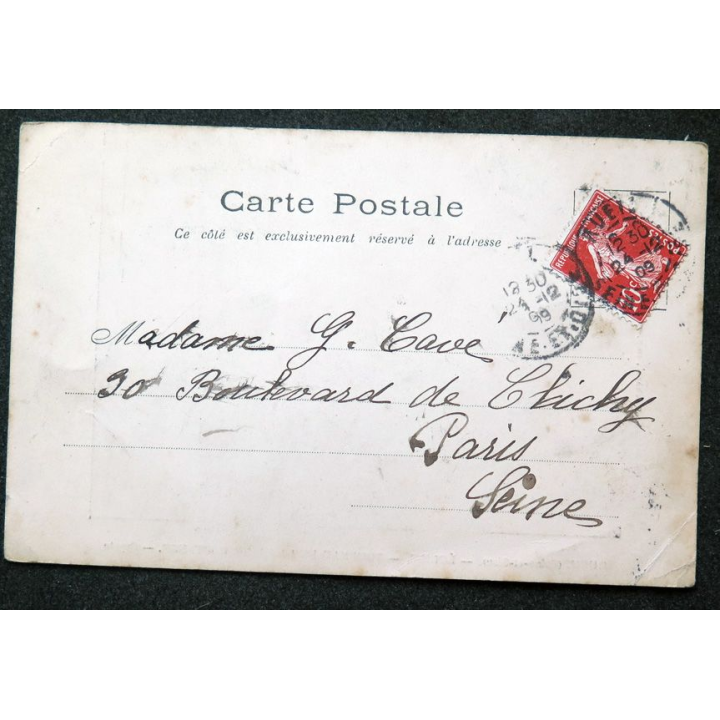 Carte Postale
Ce côté est exclusivement réservé à l'adresse
REPUBLIQUE FRANÇAISE
10c
12 30
24 -12
09
SEINE
12 30
24 -12
09
Madame G. Cavé
30 Boulevard de Clichy
Paris
Seine